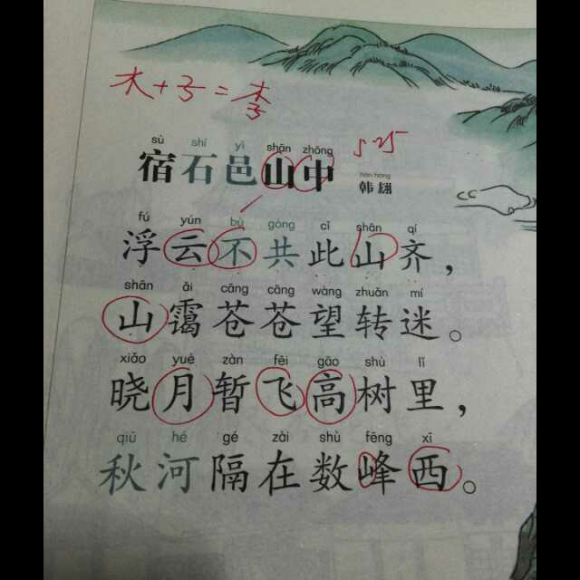 木+子=李
5.25
sù shí yì shān zhōng
宿石邑山中
hán hóng
韩翃
fú yún bù gòng cǐ shān qí
浮云不共此山齐，
shān ǎi cāng cāng wàng zhuǎn mí
山霭苍苍望转迷。
xiǎo yuè zàn fēi gāo shù lǐ
晓月暂飞高树里，
qiū hé gé zài shù fēng xī
秋河隔在数峰西。